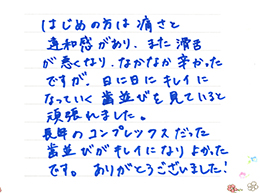 はじめの方は痛さと
違和感があり、また滑舌
が悪くなり、なかなか辛かった
ですが、日に日にキレイに
なっていく歯並びを見ていると
頑張れました。
長年のコンプレックスだった
歯並びがキレイになりよかった
です。ありがとうございました!